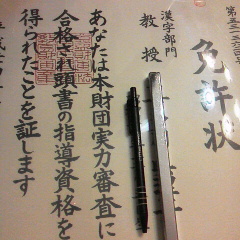 免許状
漢字部門
教授
あなたは本財団実力審査に
合格され頭書の指導資格を
得られたことを証します